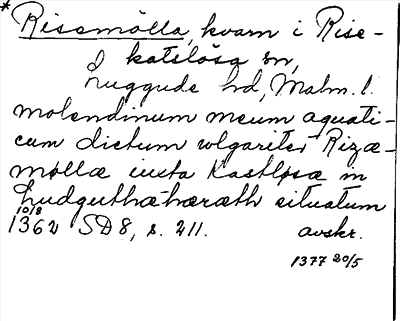 * Risemölla, kvarn i Rise-
katslösa sn,
Luggude hd, Malm. l.
molendinum meum aquati-
cum dictum wlgariter Rizæ-
møllæ iuxta Katsløsæ in
Ludguthæhæræth situatum
10/8
1362 SD 8, s. 211. avskr.
1377 20/5